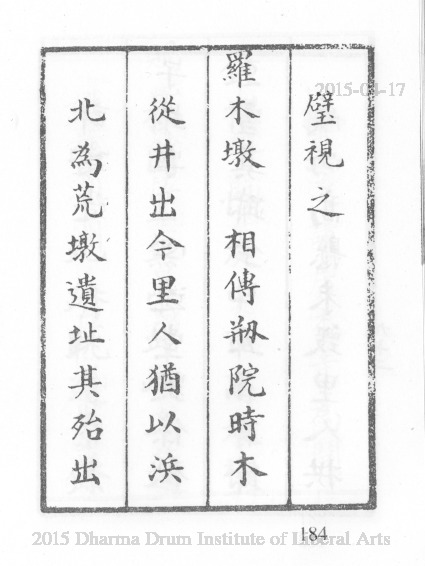 璧視之
羅木墩 相傳剏院時木
從井出今里人猶以浜
北為荒墩遺址其殆出
184
2015-04-17
2015 Dharma Drum Institute of Liberal Arts